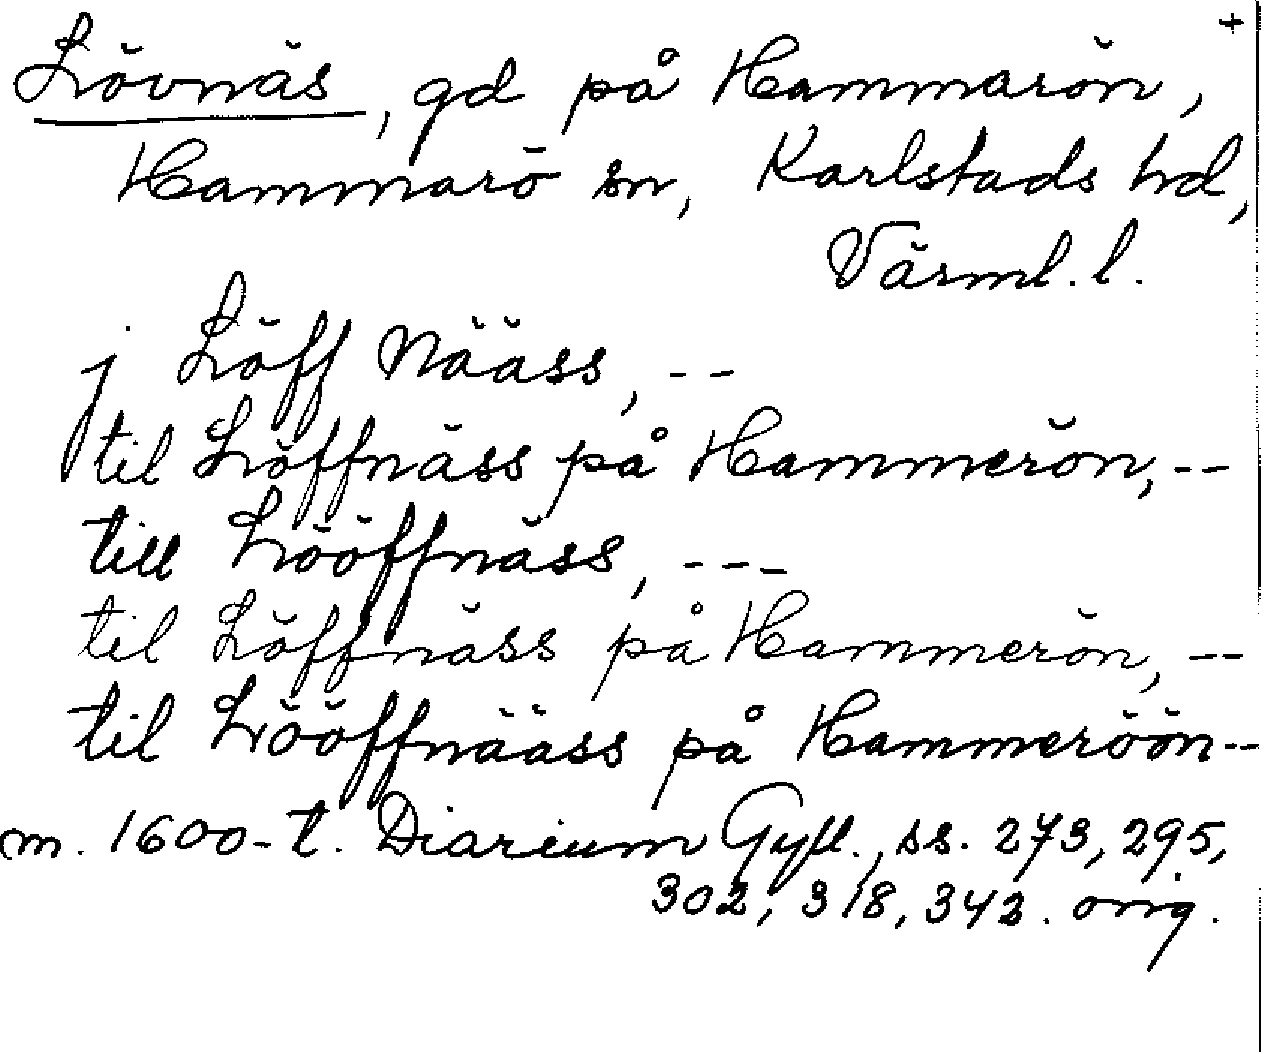 +
Lövnäs, gd på Hammarön,
Hammarö sn, Karlstads hd,
Värml. l.
j Löff Nääss, --
til Löffnäss på Hammerön, --
till Lööffnäss, ---
til Löffnäss på Hammerön, --
til Lööffnääss på Hammeröön--
m. 1600-t. Diarium Gyll., ss. 273, 295,
302, 318, 342. orig.